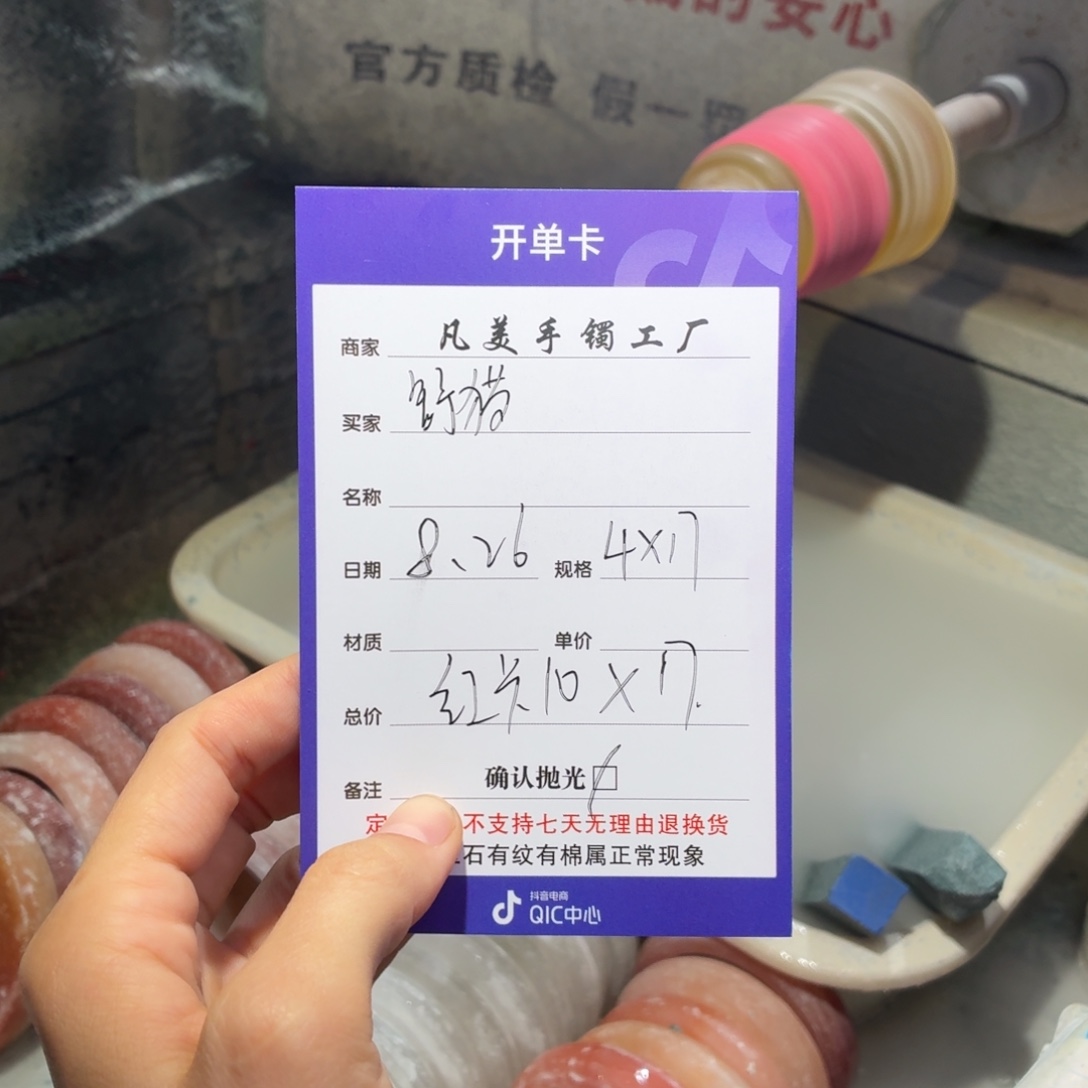 的安心
官方质检 假一
开单卡
商家 凡美手镯工厂
买家
名称
日期 8、26 规格 4X17
材质 单价
总价 红卡10X17.
备注 确认抛光
定 不支持七天无理由退换货
石有纹有棉属正常现象
抖音电商
QIC中心